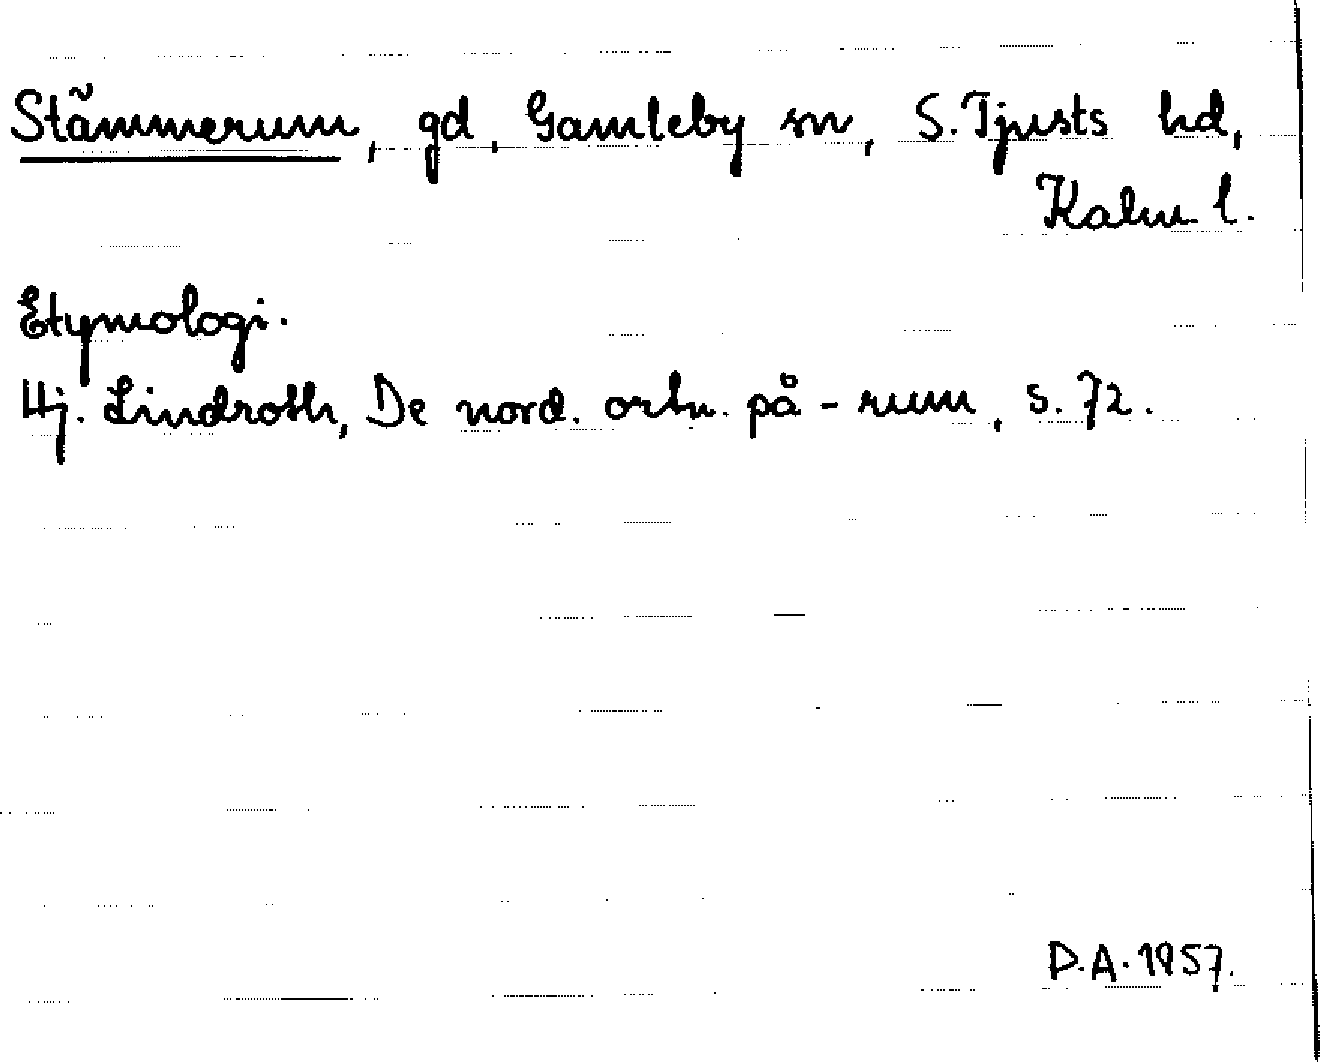 Stämmerum, gd, Gamleby sn, S. Tjusts hd,
Kalm. l.
Etymologi.
Hj. Lindroth, De nord. ortn. på -rum, s. 72.
D.A. 1957.